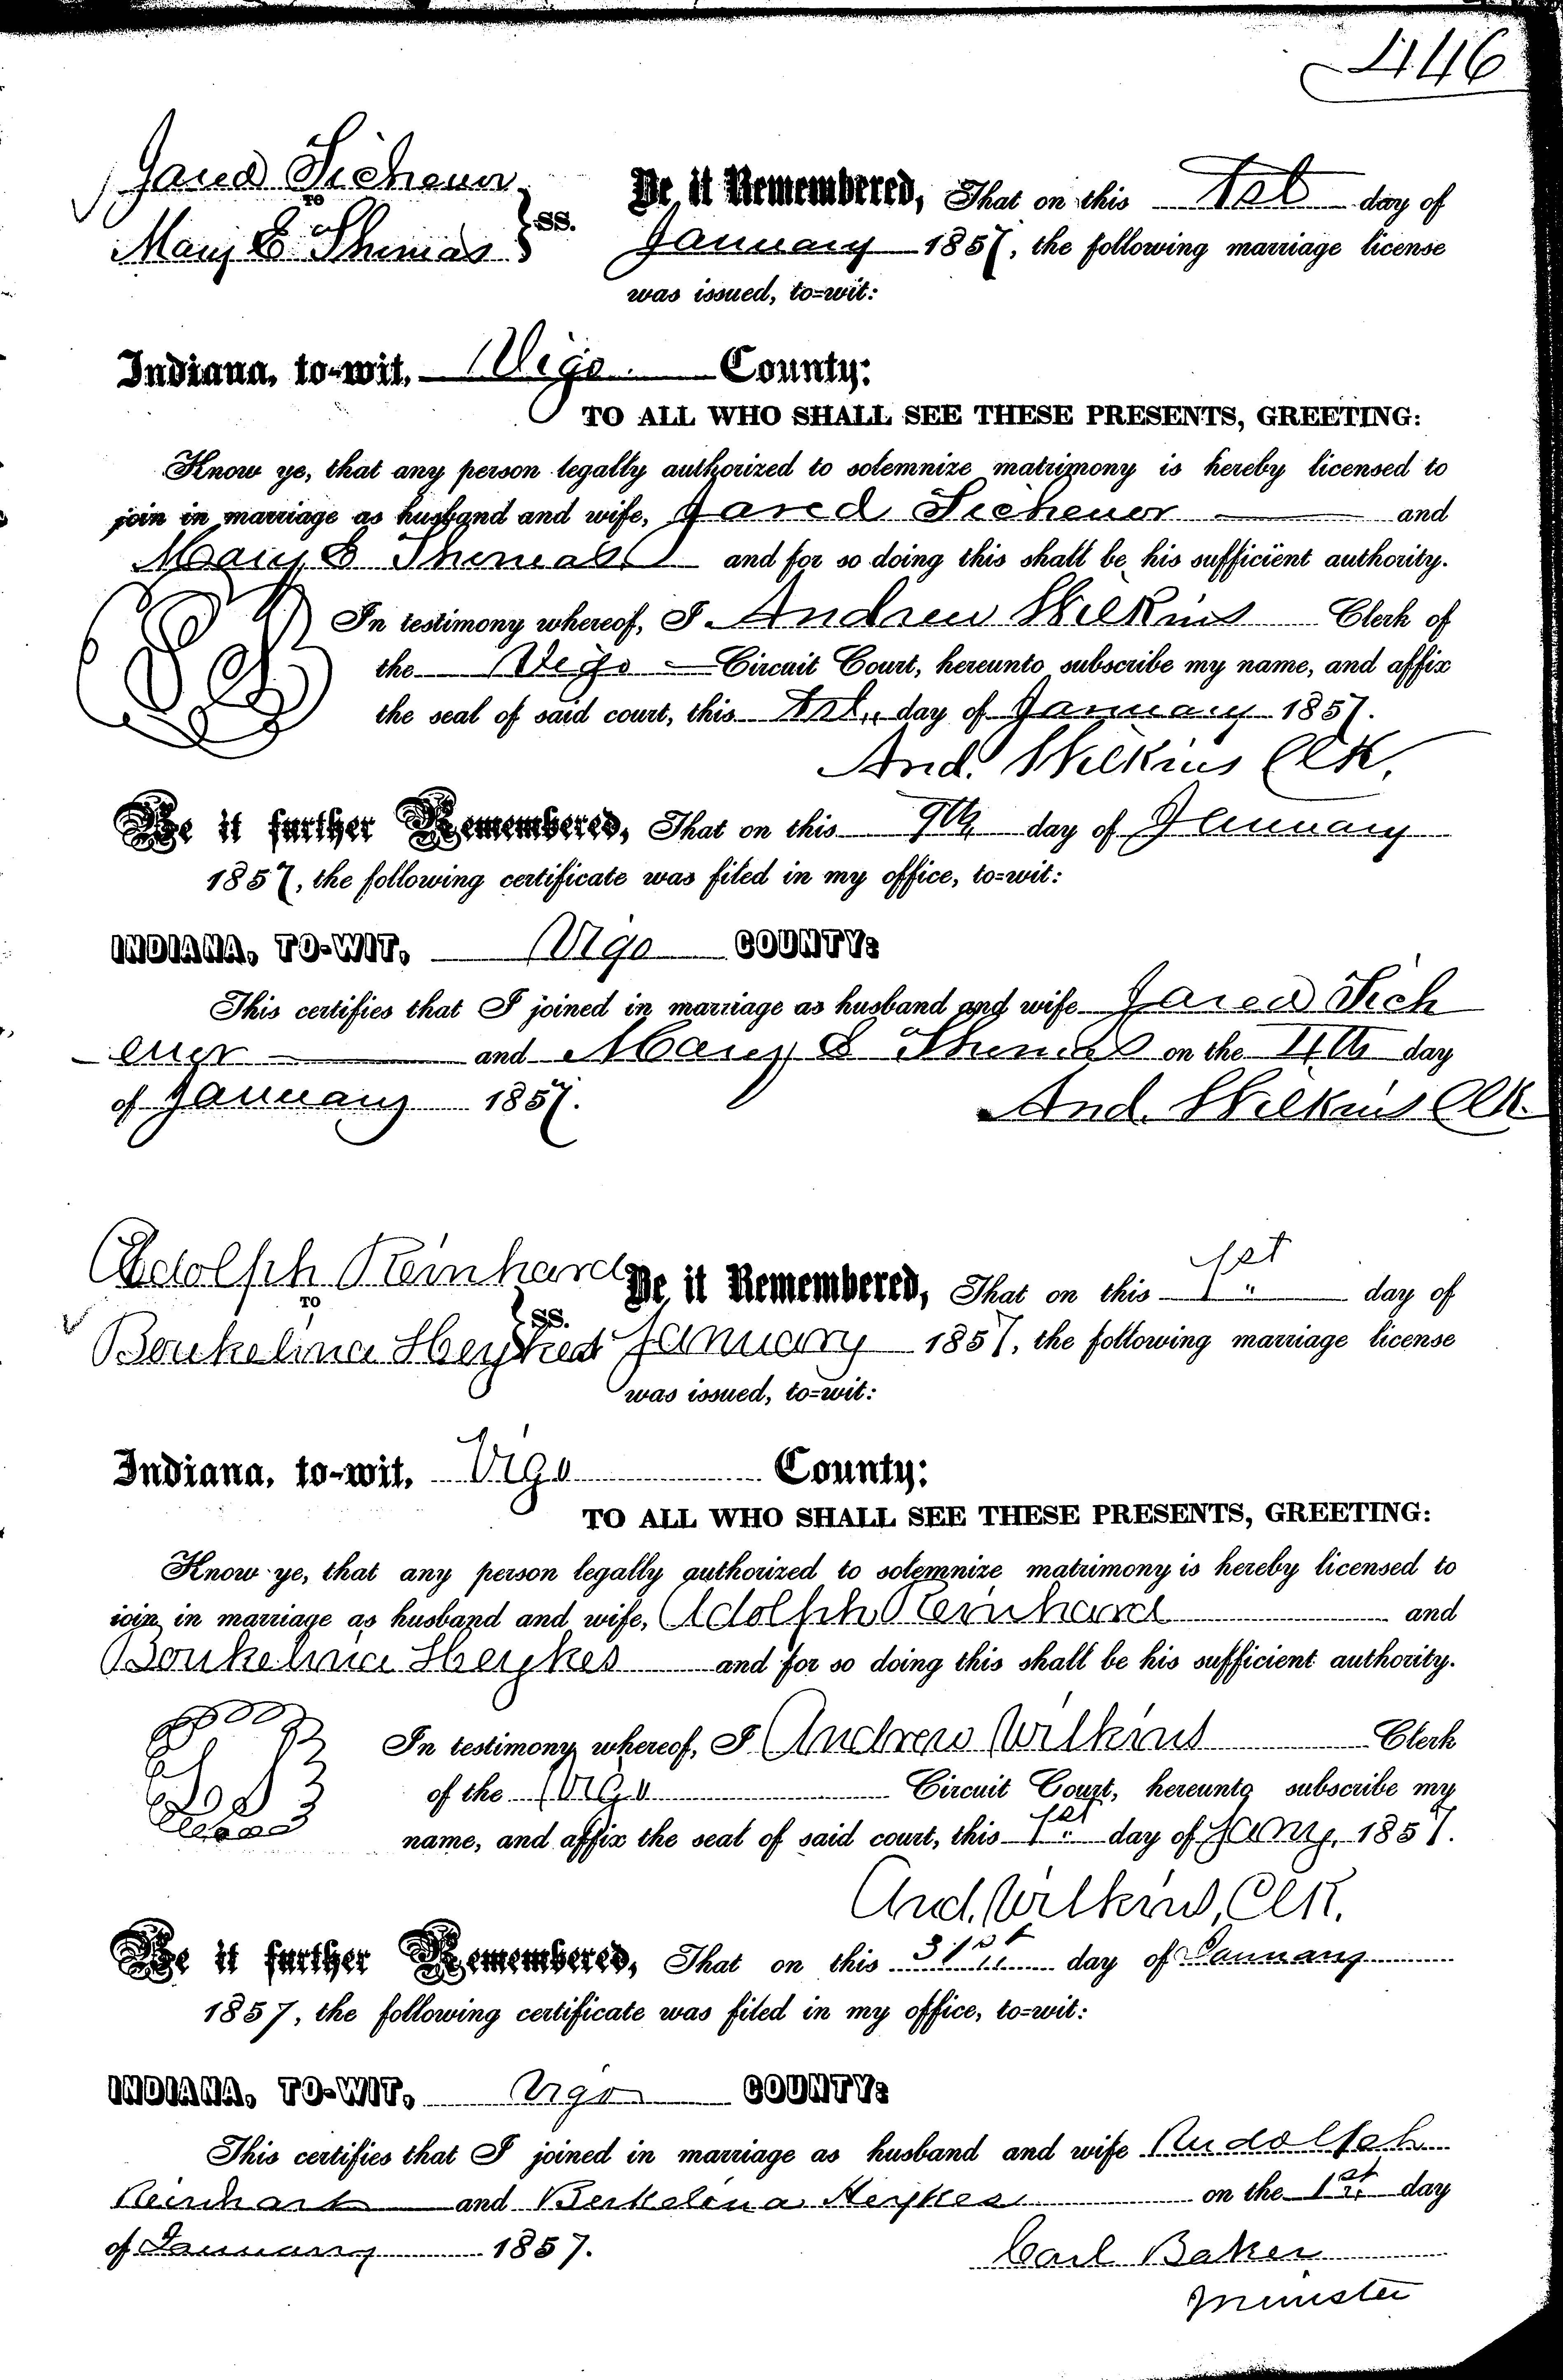 446
Jared Tichenor
TO
Mary E Thomas } SS.
Be it Remembered, That on this 1st day of
January 1857, the following marriage license
was issued, to=wit:
Indiana, to-wit, Vigo County:
TO ALL WHO SHALL SEE THESE PRESENTS, GREETING:
Know ye, that any person legally authorized to solemnize matrimony is hereby licensed to
join in marriage as husband and wife, Jared Tichenor and
Mary E Thomas and for so doing this shall be his sufficient authority.
In testimony whereof, I Andrew Wilkins Clerk of
the Vigo Circuit Court, hereunto subscribe my name, and affix
the seal of said court, this 1st day of January 1857.
And. Wilkins Clk.
Be it further Remembered, That on this 9th day of January
1857, the following certificate was filed in my office, to=wit:
INDIANA, TO-WIT, Vigo COUNTY:
This certifies that I joined in marriage as husband and wife Jared Tich
enor and Mary E Thomas on the 4th day
of January 1857.
And. Wilkins Clk.
Adolph Reinhard
TO
Boukelina Heykes } SS.
Be it Remembered, That on this 1st day of
January 1857, the following marriage license
was issued, to=wit:
Indiana, to-wit, Vigo County:
TO ALL WHO SHALL SEE THESE PRESENTS, GREETING:
Know ye, that any person legally authorized to solemnize matrimony is hereby licensed to
join in marriage as husband and wife, Adolph Reinhard and
Boukelina Heykes and for so doing this shall be his sufficient authority.
In testimony whereof, I Andrew Wilkins Clerk
of the Vigo Circuit Court, hereunto subscribe my
name, and affix the seal of said court, this 1st day of Jany, 1857.
And. Wilkins, Clk.
Be it further Remembered, That on this 31st day of January
1857, the following certificate was filed in my office, to=wit:
INDIANA, TO-WIT, Vigo COUNTY:
This certifies that I joined in marriage as husband and wife Rudolph
Reinhart and Berkelina Heykes on the 1st day
of January 1857.
Carl Baker
Minister